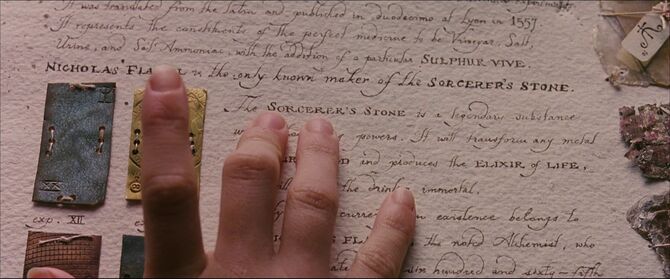 It was translated from the Latin and published in duodecimo at Lyon in 1557
It represents the constituents of the perfect medicine to be Vinegar, Salt,
Urine, and Salt Ammoniac, with the addition of a particular SULPHUR VIVE.
NICHOLAS is the only known maker of the SORCERER'S STONE.
The SORCERER'S STONE is a legendary substance
powers. It will transform any metal
and produces the ELIXIR of LIFE,
the immortal.
existence belongs to
the noted Alchemist, who
hundred and sixty-fifth
XX
exp. XII